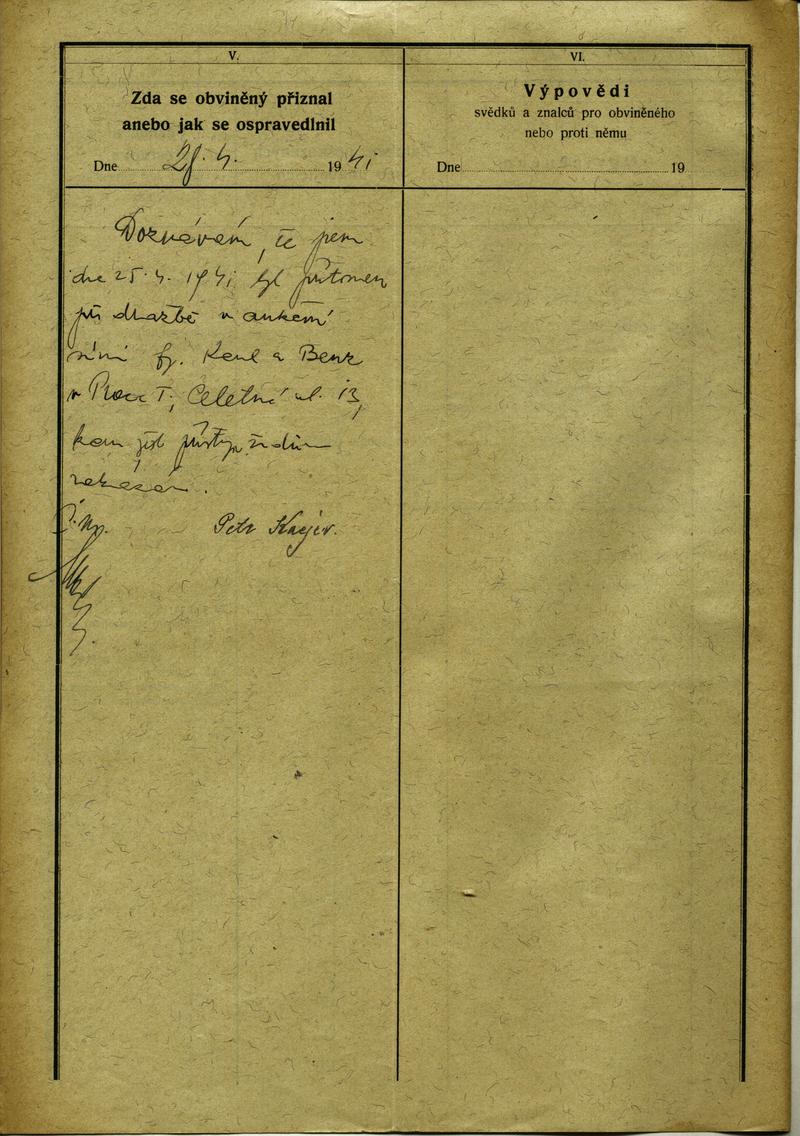 V.
Zda se obviněný přiznal
anebo jak se ospravedlnil
Dne 28. 4. 1941
Doznávám, že jsem
dne 25. 4. 1941 byl přítomen
při dražbě v aukční
síni fy. a
v Praze I., Celetná ul. 13,
kam jest přístup židům
zakázán.
Petr
VI.
Výpovědi
svědků a znalců pro obviněného
nebo proti němu
Dne 19